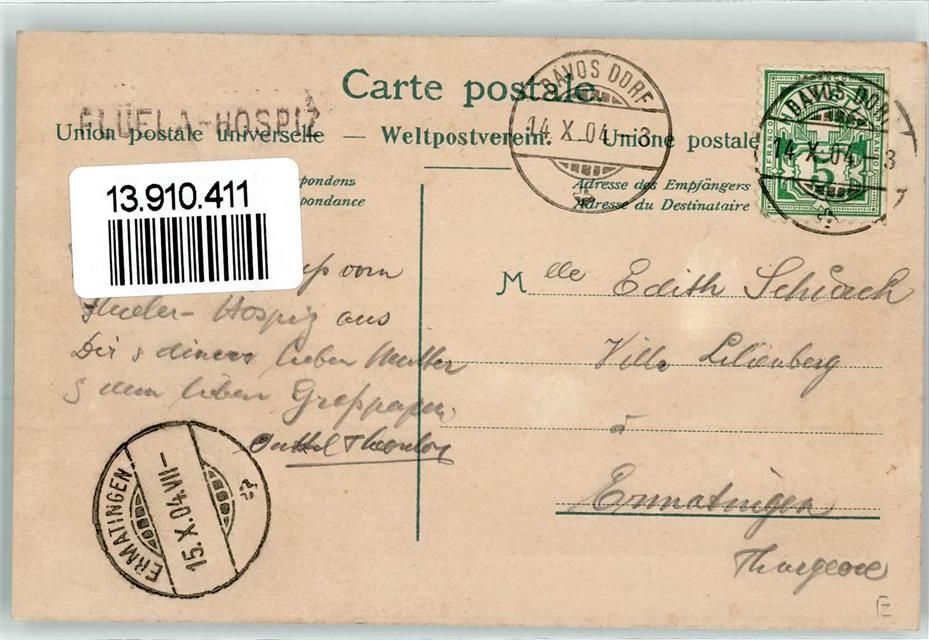 Carte postale.
FLÜELA-HOSPIZ
Union postale universelle — Weltpostverein. — Unione postale
DAVOS DORF
14.X.04.-3
DAVOS DORF
14.X.04.-3
FRANCO
5
13.910.411
pondenz
pondance
Adresse des Empfängers
Adresse du Destinataire
vom
Flüela-Hospiz aus
Dir & deiner lieben Mutter
& dem lieben Grosspapa
Onkel Theodor
Mlle Edith Schoch
Villa Lilienberg
à
Ermatingen
Thurgovie
ERMATINGEN
15.X.04.VII-
E